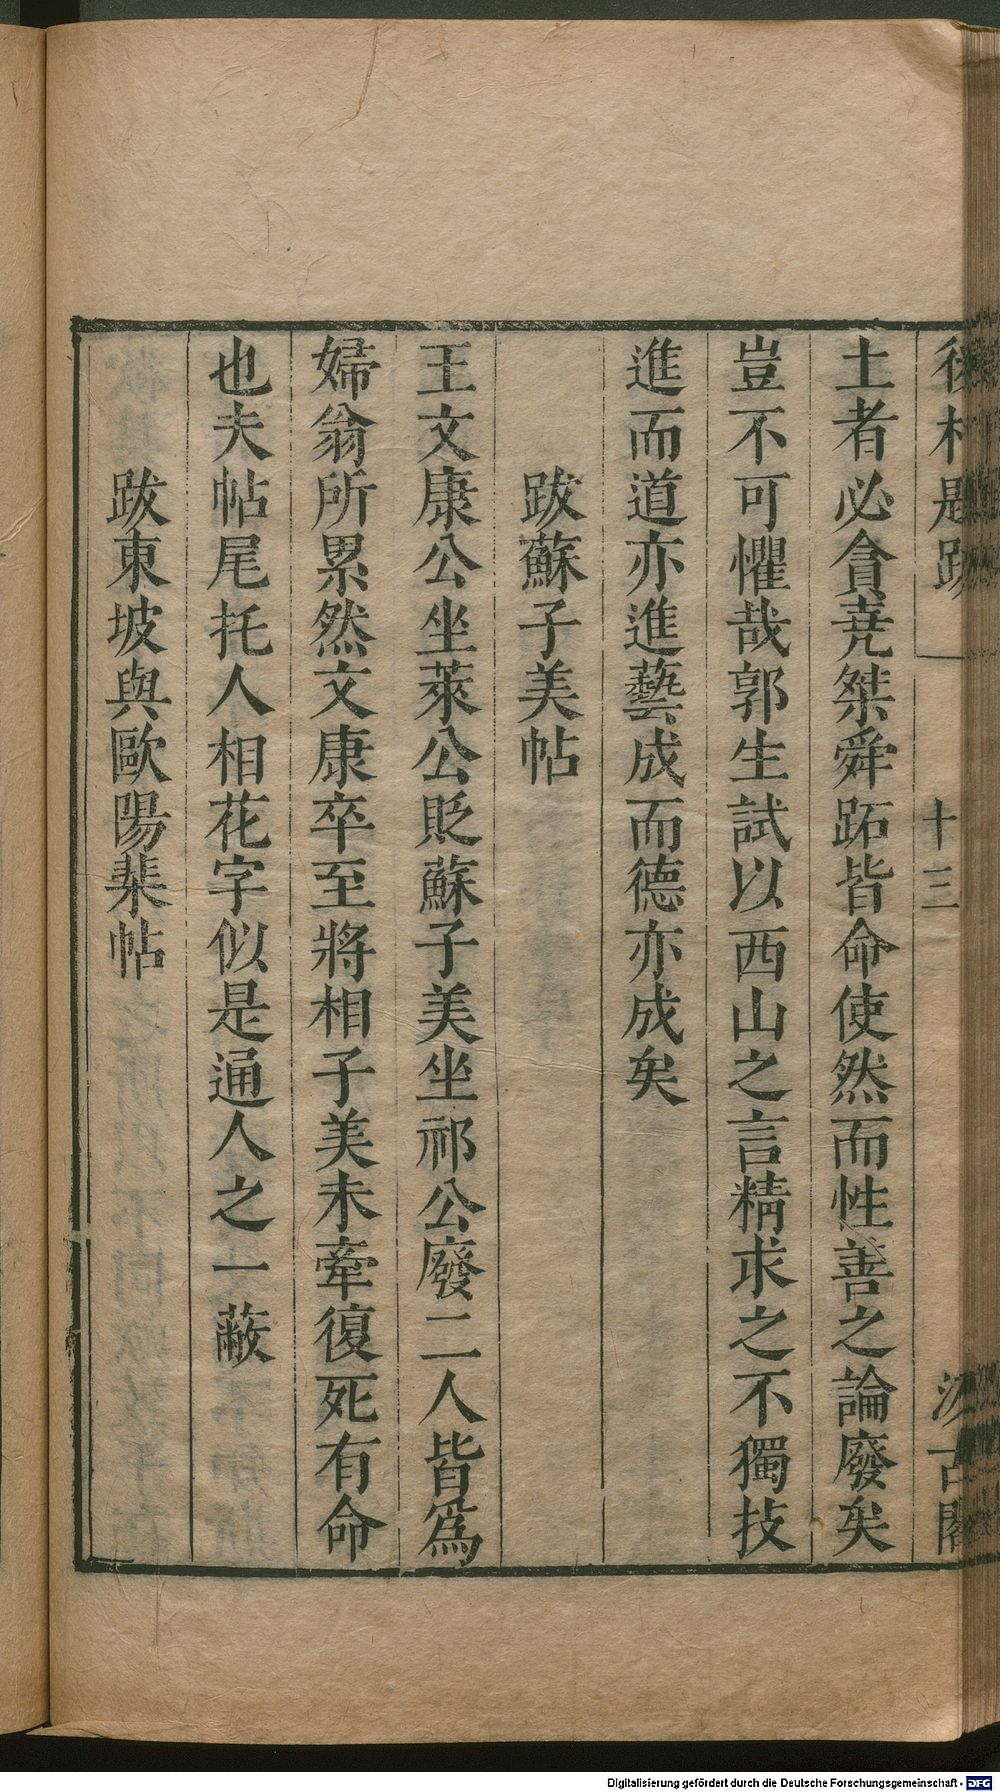 後村題跋
十三
汲古閣
土者必貪堯桀舜跖皆命使然而性善之論廢矣
豈不可懼哉郭生試以西山之言精求之不獨技
進而道亦進藝成而德亦成矣
跋蘇子美帖
王文康公坐萊公貶蘇子美坐祁公廢二人皆爲
婦翁所累然文康卒至將相子美未牽復死有命
也夫帖尾托人相花字似是通人之一蔽
跋東坡與歐陽棐帖
Digitalisierung gefördert durch die Deutsche Forschungsgemeinschaft - DFG